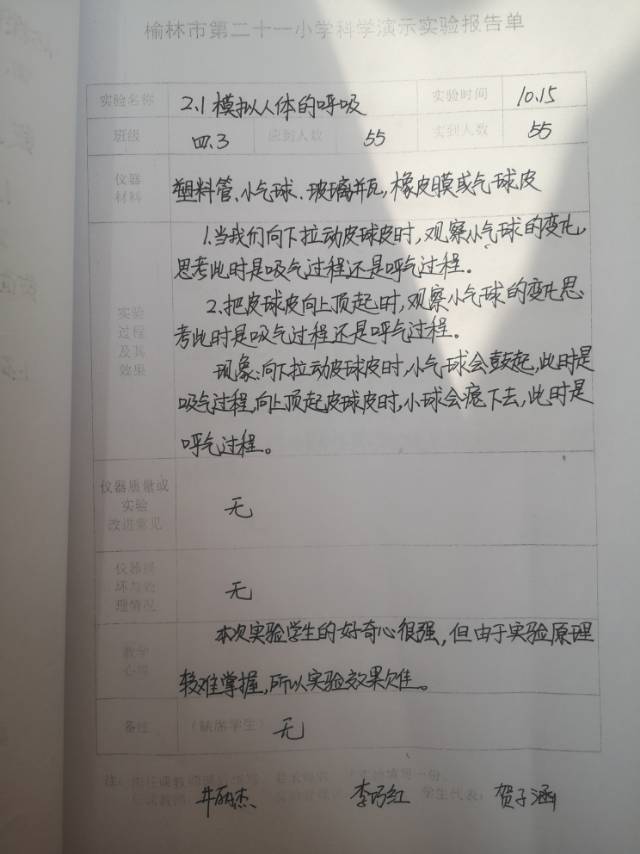 榆林市第二十一小学科学演示实验报告单
实验名称 2.1模拟人体的呼吸 实验时间 10.15
班级 四.3 应到人数 55 实到人数 55
仪器
材料
塑料管、小气球、玻璃并瓦,橡皮膜或气球皮
实验
过程
及其
效果
1.当我们向下拉动皮球皮时,观察小气球的变化,
思考此时是吸气过程还是呼气过程。
2.把皮球皮向上顶起时,观察小气球的变化思
考此时是吸气过程还是呼气过程。
现象:向下拉动皮球皮时,小气球会鼓起,此时是
吸气过程,向上顶起皮球皮时,小球会瘪下去,此时是
呼气过程。
仪器质量或
实验
改进意见
无
仪器损
坏与处
理情况
无
教学
心得
本次实验学生的好奇心很强,但由于实验原理
较难掌握,所以实验效果欠佳。
备注 (缺席学生) 无
注:
学生代表: 贺子涵